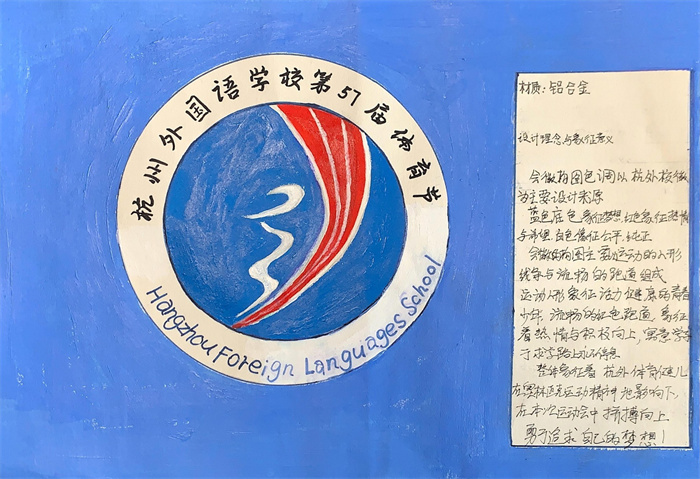 杭州外国语学校第57届体育节
Hangzhou Foreign Languages School
材质：铝合金
设计理念与象征意义
会徽构图色调以杭外校徽
为主要设计来源
蓝色底色象征梦想，红色象征热情
与希望，白色象征公平，纯正
会徽构图主要运动的人形
线条与流畅的跑道组成
运动人形象征活力健康的青春
少年，流畅的红色跑道，象征
着热情与积极向上，寓意学子
于求学路上永不停息
整体象征着杭外体育健儿
在奥林匹克运动精神地影响下
在本次运动会中拼搏向上
勇于追求自己的梦想！